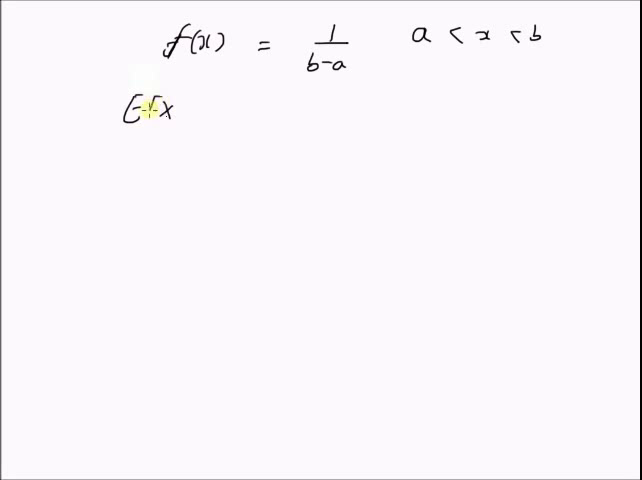 f(x) = 1/(b-a) a < x < b
E[x